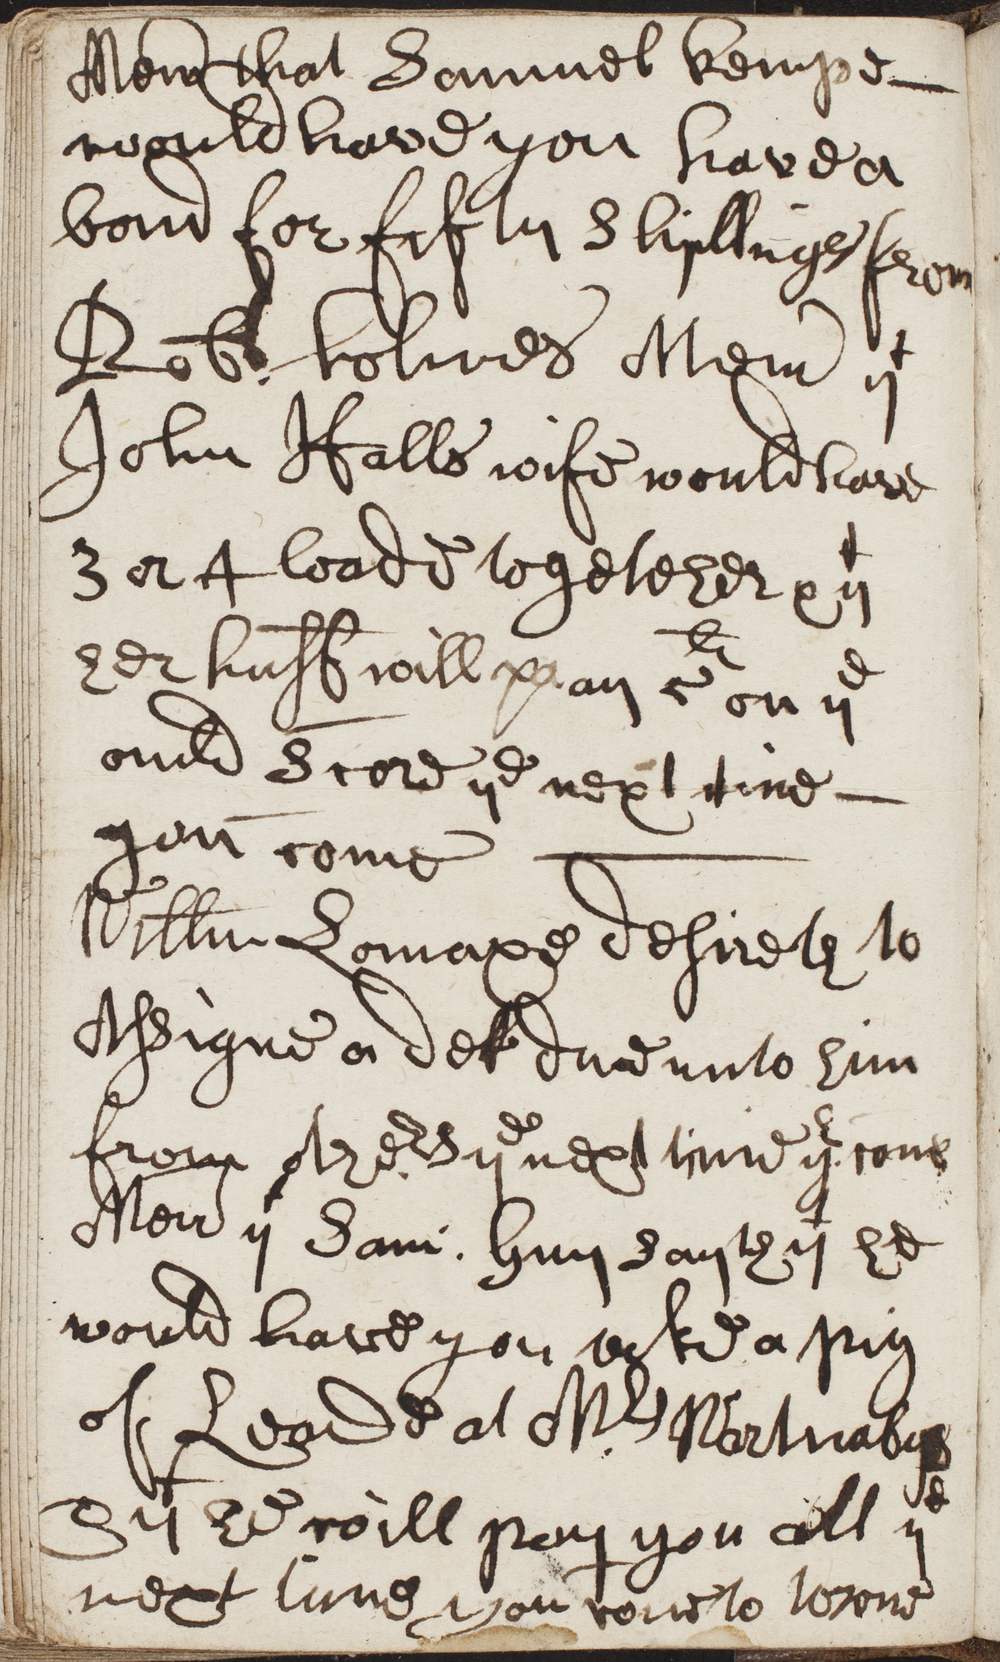 Mem that Samuel kempe
would have you have a
bond for fifty Shillings from
Rob: holmes Mem yt
John Halls wife would have
3 or 4 loade togetether &
her husb will pay on ye
ould Score ye next time
you come
Willm Lomaxe desireth to
Assigne a det due unto him
from ye next time yu come
Mem yt Sam: Guy sayth yt he
would have you take a pig
of Leade at Mrs Wortnabys
& yt he will pay you all ye
next time you come to towne